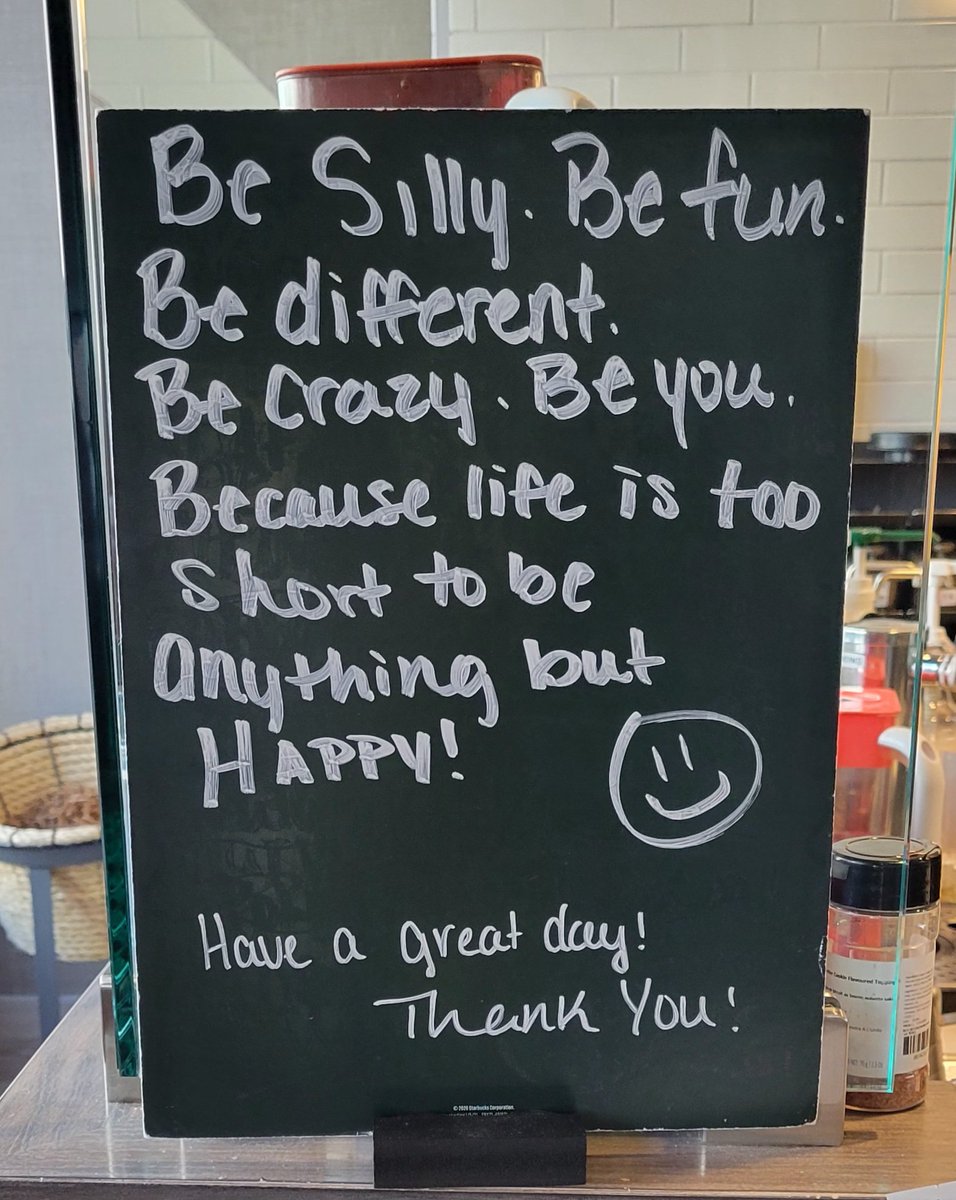 Be Silly. Be fun.
Be different.
Be Crazy. Be you.
Because life is too
short to be
anything but
HAPPY!
Have a great day!
Thank You!
© 2020 Starbucks Corporation.
Cookie Flavoured Topping